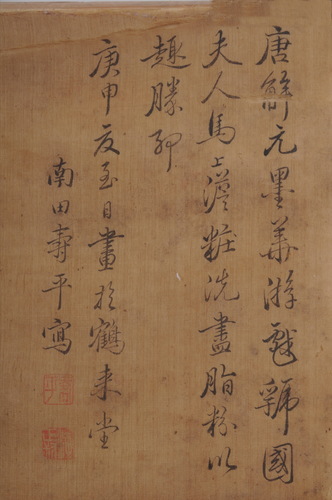 唐解元墨華游戲虢國
夫人馬上澹粧洗盡脂粉以
趣勝
庚申夏至日畫於鶴来堂
南田壽平寫